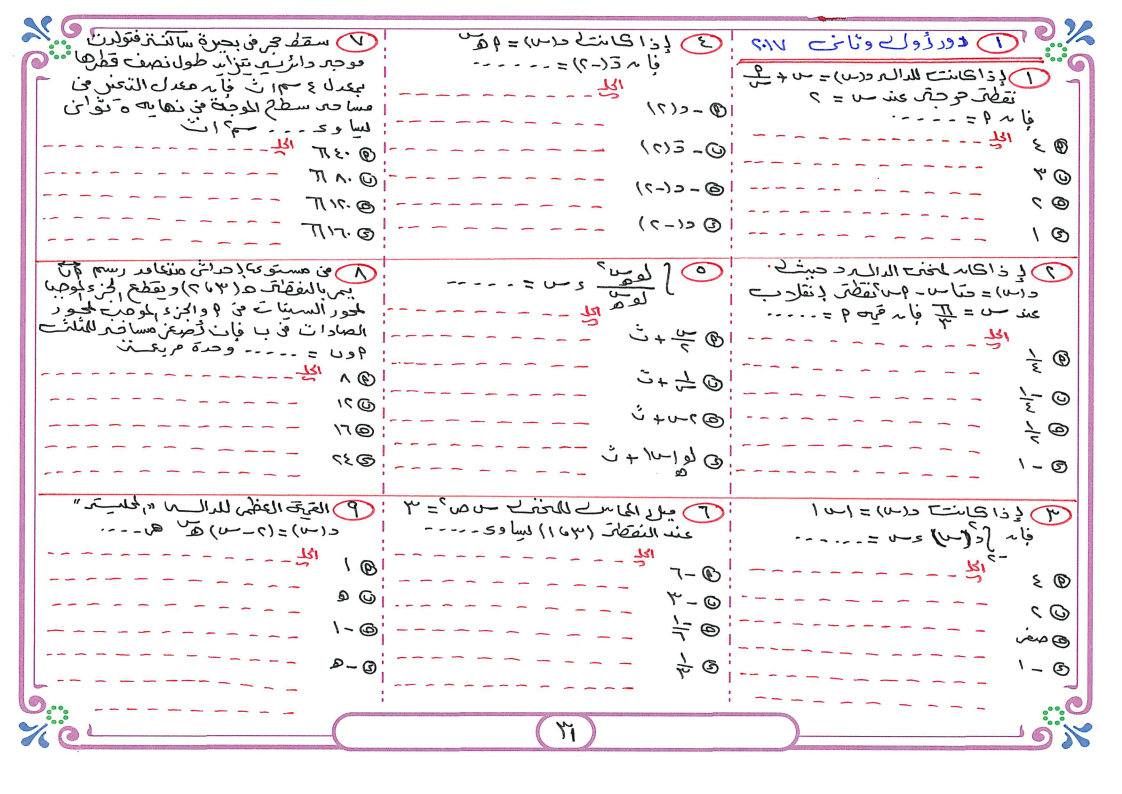 ١ دور أول وثانى ٢٠١٧
١ إذا كانت للدالة د(س) = س + م/س
نقطة حرجة عند س = ٢
فإن م = ......
الحل
٤
٣
٢
١
٢ إذا كان لمنحنى الدالة د حيث
د(س) = حتاس - م س٢ نقطة إنقلاب
عند س = π/٣ فإن قيمة م = ......
الحل
١/٤
-١/٤
١/٢
-١
٣ إذا كانت د(س) = |س|
فإن ∫ د(س) ءس = ......
الحل
٤
٢
صفر
-١
٤ إذا كانت د(س) = م هـ س
فإن دَ(-٢) = ......
الحل
-د(٢)
-دَ(٢)
-د(-٢)
د(-٢)
٥ ∫ لو هـ س٢ / لو هـ س ءس = ......
الحل
س/٢ + ث
١/س + ث
٢س + ث
لو هـ |س| + ث
٦ ميل المماس للمنحنى س ص٢ = ٣
عند النقطة (٣، ١) يساوى ......
الحل
-٦
-٣
-١/٦
١/٣
٧ سقط حجر فى بحيرة ساكنة فتولدت
موجة دائرية يتزايد طول نصف قطرها
بمعدل ٤ سم/ث فإن معدل التغير فى
مساحة سطح الموجة فى نهاية ٥ ثوانى
يساوى .... سم٢/ث
الحل
٤٠ π
٨٠ π
١٢٠ π
١٦٠ π
٨ فى مستوى إحداثى متعامد رسم م ب
يمر بالنقطة هـ (٣، ٢) ويقطع الجزء الموجب
لمحور السينات فى م والجزء الموجب لمحور
الصادات فى ب فإن أصغر مساحة للمثلث
م و ب = ..... وحدة مربعة
الحل
٨
١٢
١٦
٢٤
٩ القيمة العظمى للدالة "المحلية"
د(س) = (٢ - س) هـ س هى ....
الحل
١
هـ
-١
-هـ
٣١